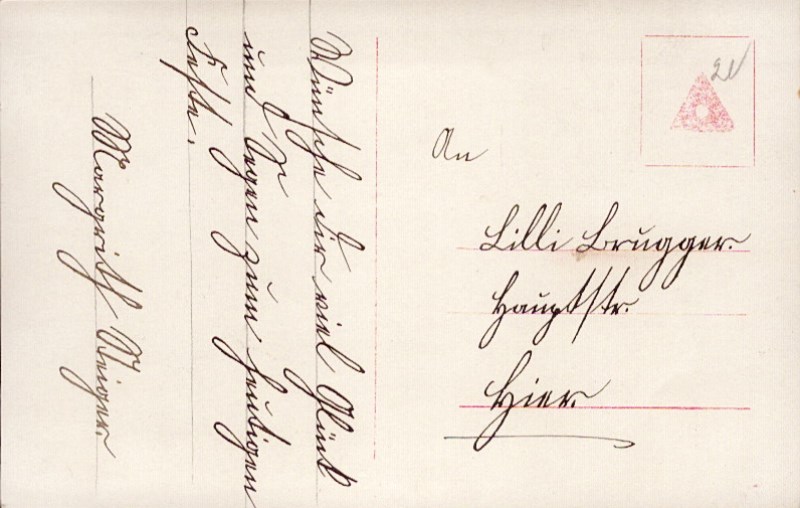 Wünsche dir viel Glück
und Segen zum heutigen
Feste.
Margrith
An
Lilli Brugger.
Hauptstr.
Hier.